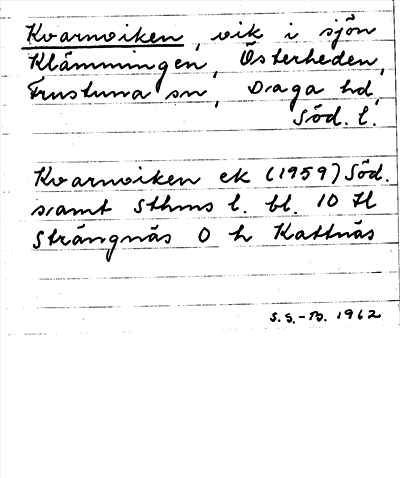 Kvarnviken, vik i sjön
Klämmingen, Österheden,
Frustuna sn, Daga hd,
Söd. l.
Kvarnviken ek (1959) Söd.
samt Sthms l. bl. 10 H
Strängnäs O h Kattnäs
S.S.-B. 1962